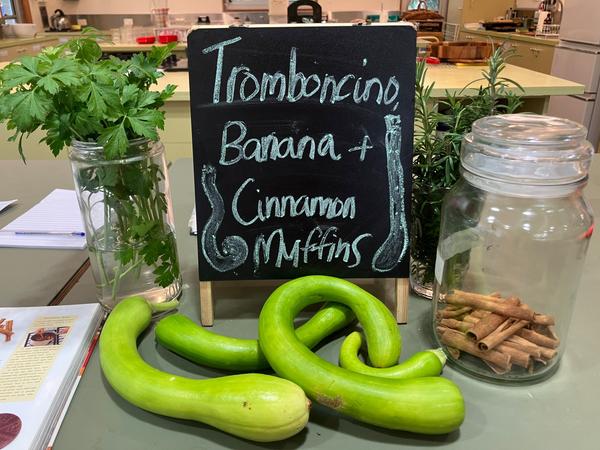 Tromboncino,
Banana +
Cinnamon
Muffins